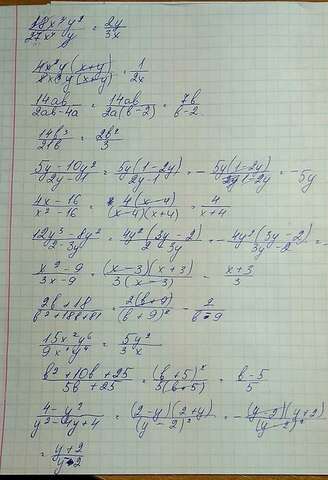 18x⁴y² / 27x⁵y = 2y / 3x
4x²y(x+y) / 8x³y(x+y) = 1 / 2x
14ab / 2ab-4a = 14ab / 2a(b-2) = 7b / b-2
14b³ / 21b = 2b² / 3
5y-10y² / 2y-1 = 5y(1-2y) / 2y-1 = - 5y(1-2y) / 1-2y = -5y
4x-16 / x²-16 = 4(x-4) / (x-4)(x+4) = 4 / x+4
12y³-8y² / 2-3y = 4y²(3y-2) / 2-3y = - 4y²(3y-2) / 3y-2 =
x²-9 / 3x-9 = (x-3)(x+3) / 3(x-3) = x+3 / 3
2b+18 / b²+18b+81 = 2(b+9) / (b+9)² = 2 / b+9
15x²y⁶ / 9x³y⁴ = 5y² / 3x
b²+10b+25 / 5b+25 = (b+5)² / 5(b+5) = b-5 / 5
4-y² / y²-4y+4 = (2-y)(2+y) / (y-2)² = - (y-2)(y+2) / (y-2)²
= y+2 / y-2